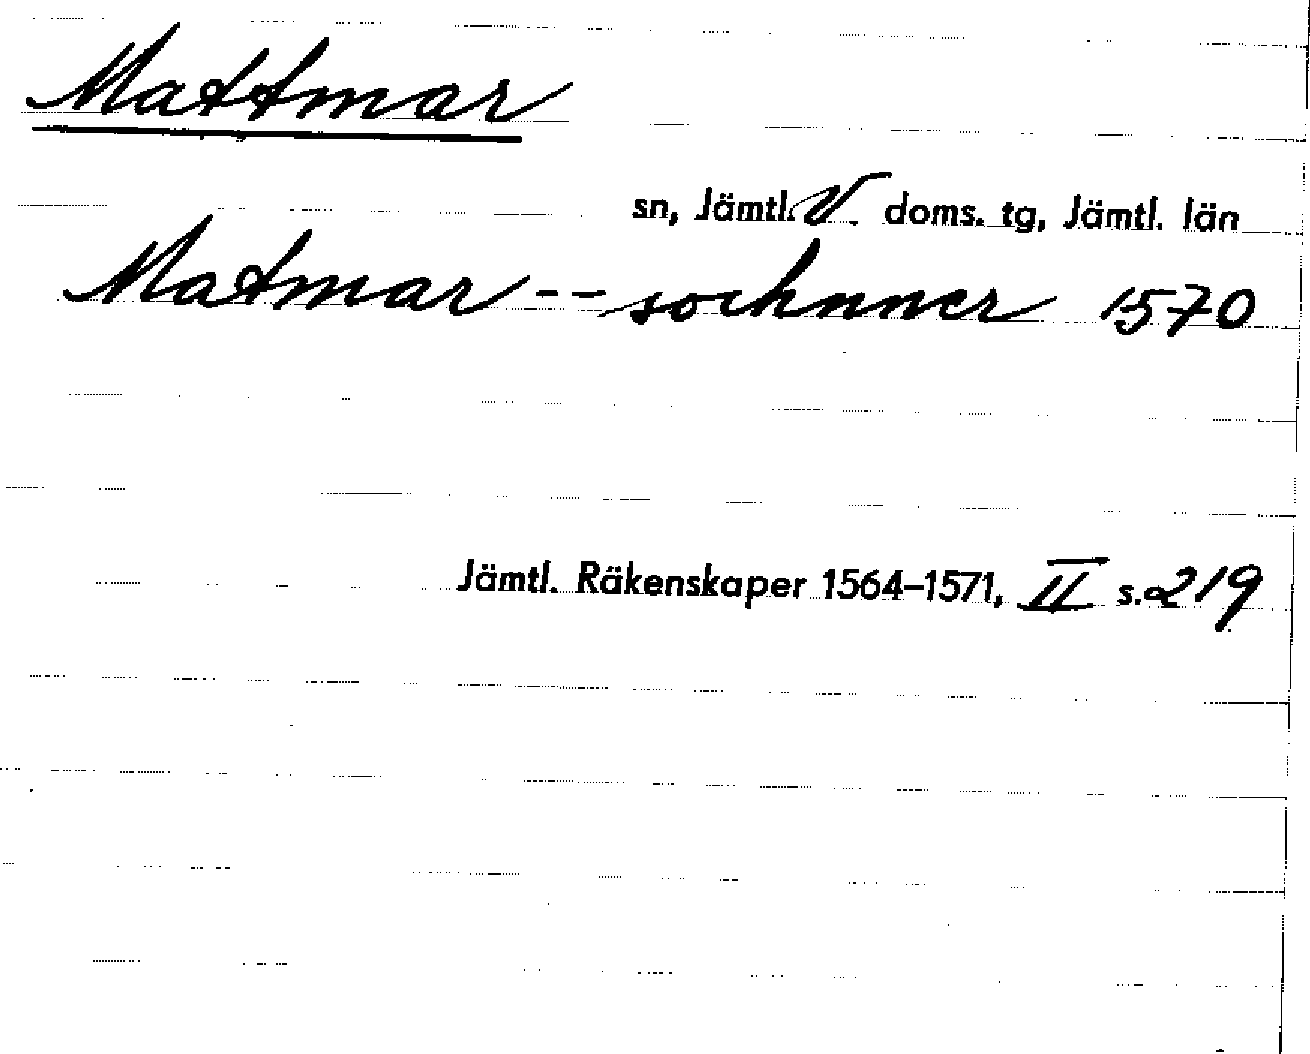 Mattmar
sn, Jämtl. V. doms. tg, Jämtl. län
Matmar -- sochnner 1570
Jämtl. Räkenskaper 1564–1571, II s. 219